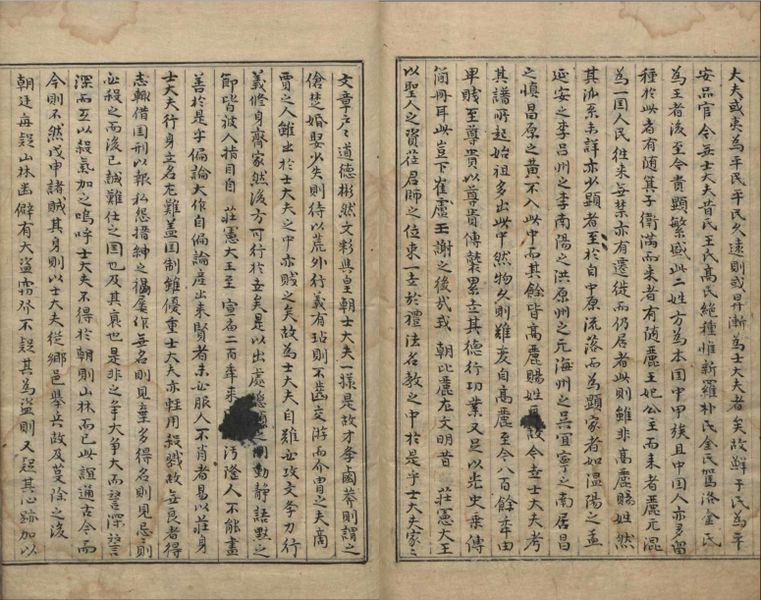 大夫或夷為平民平民久遠則或昇漸為士大夫者矣故鮮于氏為平
安品官今無士大夫昔氏王氏高氏絕種惟新羅朴氏金氏駕洛金氏
為王者後至今貴顯繁盛此二姓方為本国中甲族且中国人亦多留
種於此者有随箕子衛滿而来者有随麗王妃公主而来者麗元混
為一国人民往来無禁亦有遷徙而仍居者此則雖非高麗賜姓然
其派系未詳亦少顯者至於自中原流落而為顯家者如溫陽之孟
延安之李呂州之李南陽之洪原州之元海州之吳宜寧之南居昌
之愼昌原之黃不入此中而其餘皆高麗賜姓故今之士大夫考
其譜所起始祖多出此中然物久則難友自高麗至今八百餘年由
卑賤至尊貴以尊貴傳襲累立其德行功業又足以光史乘傳
簡冊耳此豈下崔盧王謝之後哉或 朝比麗尤文明昔 莊憲大王
以聖人之資莅君師之位束一世於禮法名教之中於是乎士大夫家〻
文章戶〻道德彬然文彩與皇朝士大夫一様是故才李鹵莽則謂之
傖楚婚娶少失則待以荒外行義有玷則不齒交游而介冑之夫商
賈之人雖出於士大夫之中亦賤之矣故為士大夫自難必攻文李力行
義修身齊家然後方可行於世矣是以出處之間動静語黙之
節皆被人指目自 莊憲大王至 宣庙二百年来污隆人不能盡
善於是乎偏論大作自偏論産出来賢者未必服人不肖者易以莊身
士大夫行身立名尤難盖国制雖優重士大夫亦軽用殺戮故無良者得
志輒借国刑以報私怨搢紳之禍屢作無名則見棄多得名則見忌忌則
必殺之而後已誠難仕之国也及其衰也是非之争大争大而讐深讐
深而互以殺氣加之嗚呼士大夫不得於朝則山林而已此誼通古今而
今則不然戊申諸賊其身則以士大夫從鄉邑舉兵故及蔓除之後
朝廷每疑山林幽僻有大盜窃發不疑其為盜則又疑其心跡加以